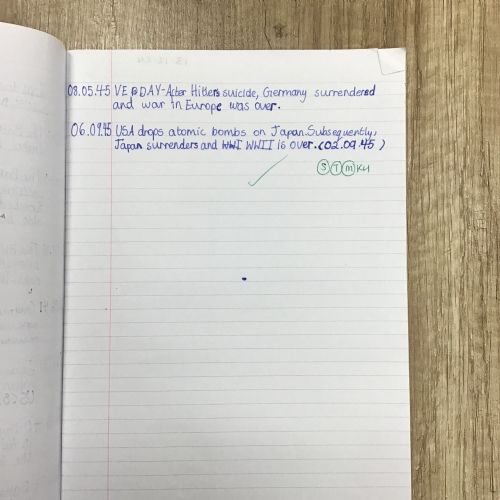 08.05.45 VE DAY-After Hitlers suicide, Germany surrendered
and war in Europe was over.
06.09.45 USA drops atomic bombs on Japan. Subsequently,
Japan surrenders and WWI WWII is over. (02.09.45)
S T M K4